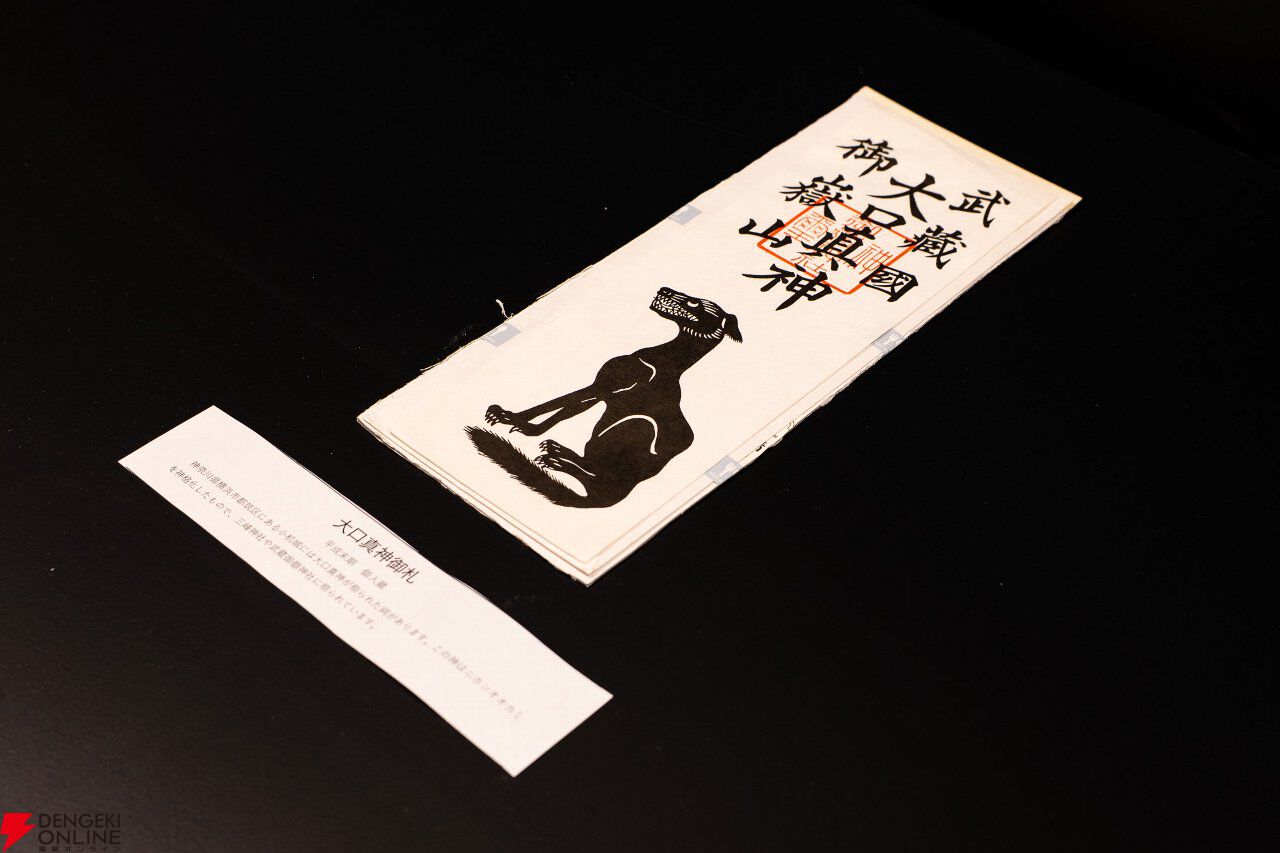 武藏國
大口眞神
御嶽山
大口真神御札
平成末期 個人蔵
神奈川県横浜市都筑区にある小机城には大口真神が祭られた祠があります。この神はニホンオオカミ
を神格化したもので、三峰神社や武蔵御嶽神社に祭られています。
DENGEKI
ONLINE
電撃オンライン